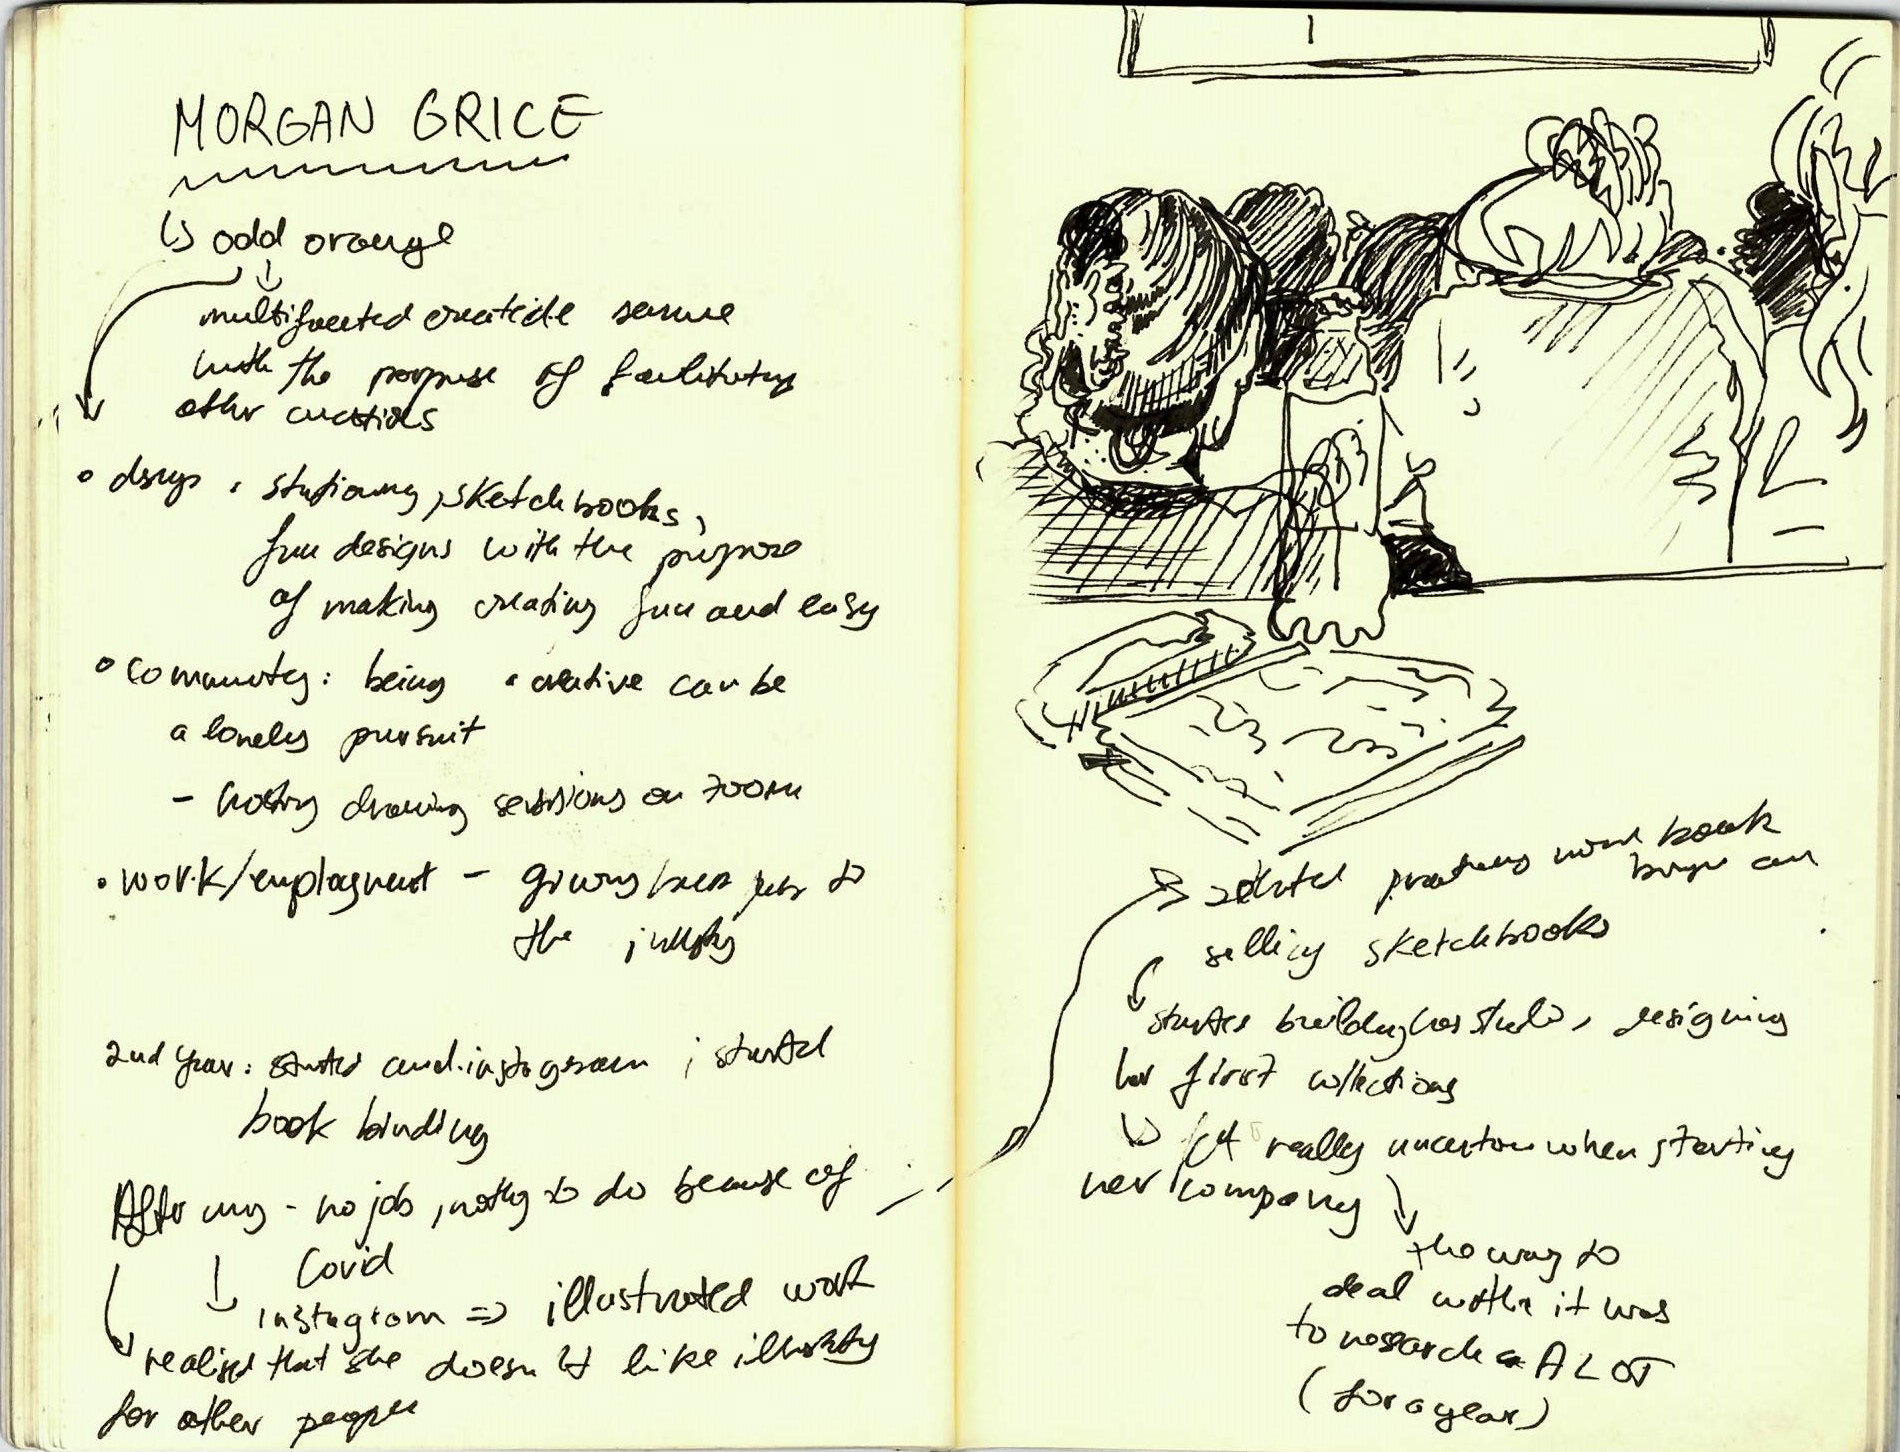 MORGAN GRICE
odd orange
multifaceted creative
with the purpose of facilitating
other creatives
stationary, sketchbooks,
fun designs with the purpose
of making creating fun and easy
being creative can be
a lonely pursuit
- hosting drawing sessions on zoom
work/employment - giving
the
2nd year: started and. instagram ; started
book binding
After uny - no job, nothing to do because of
Covid
instagram => illustrated work
realised that she doesn't like
for other people
book
selling sketchbooks
starts building her studio, designing
her first collections
felt really uncertain when starting
her company
the way to
deal with it was
to research A LOT
(for a year)